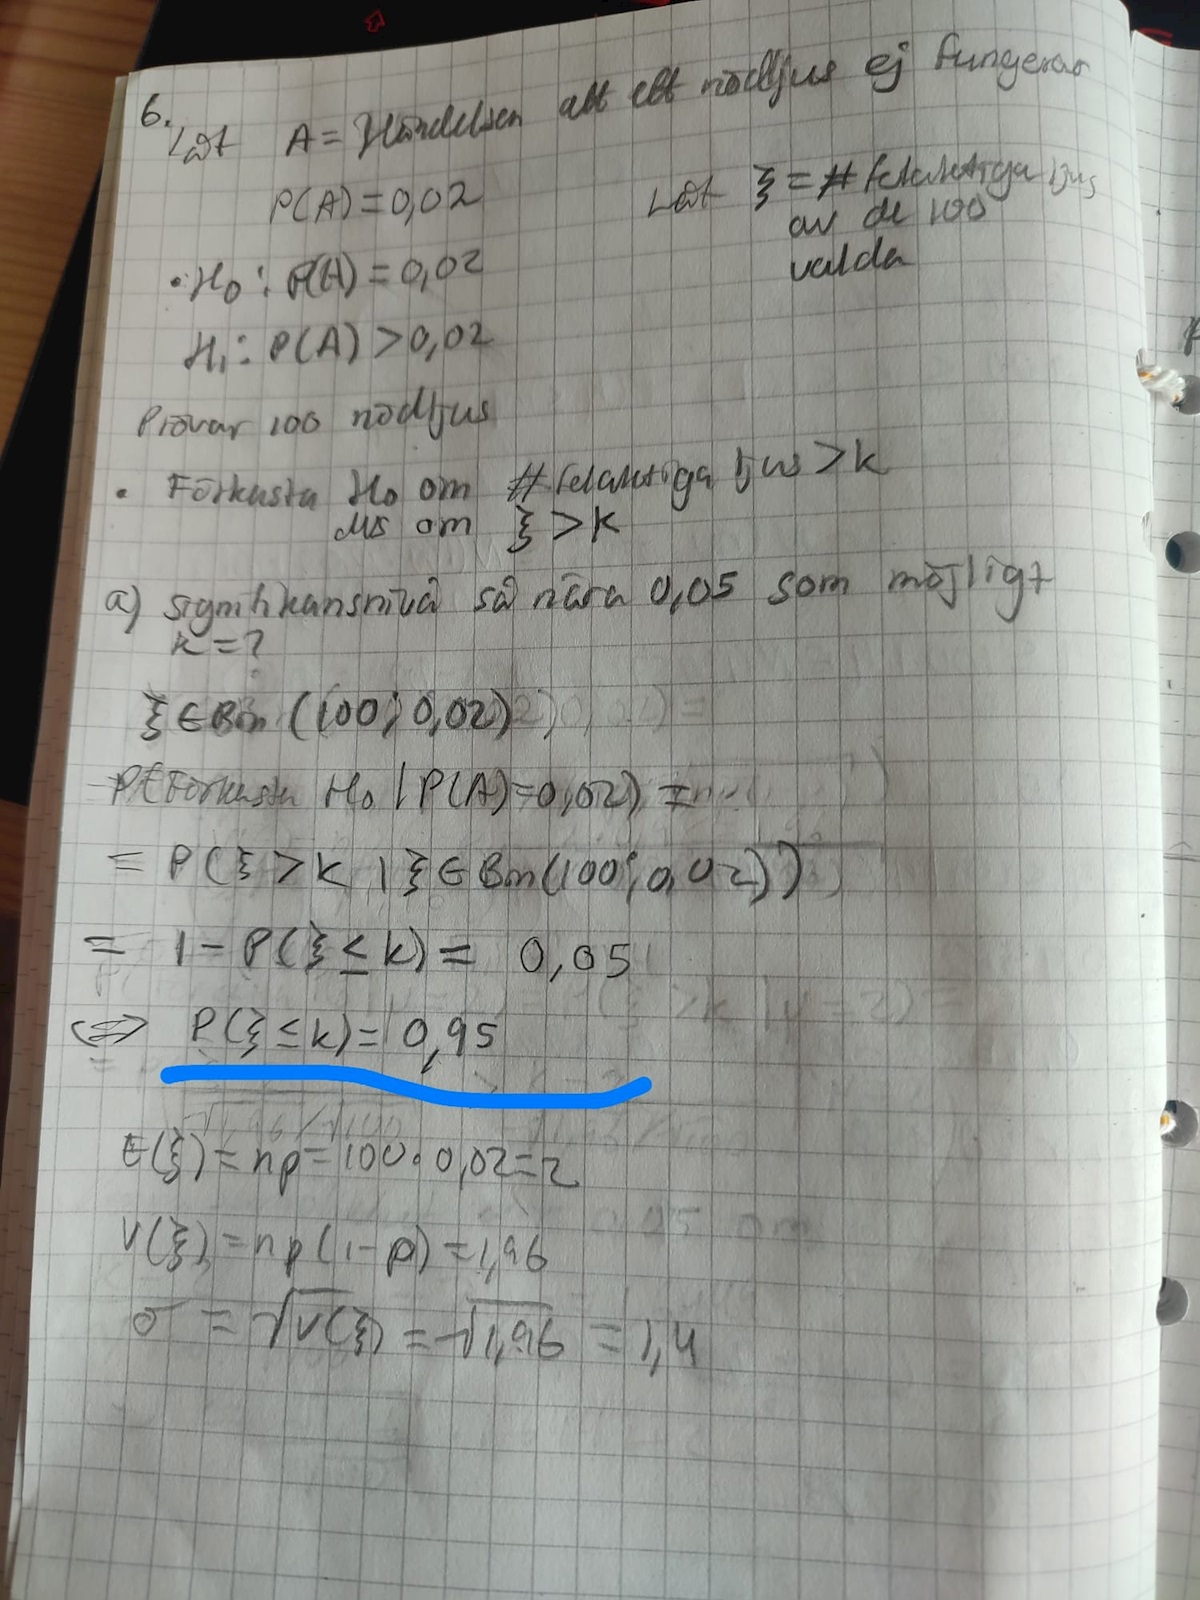 6.
Låt A = Händelsen att ett nödljus ej fungerar
P(A) = 0,02
Låt ξ = # felaktiga ljus
av de 100
valda
• H₀: P(A) = 0,02
H₁: P(A) > 0,02
Prövar 100 nödljus
• Förkasta H₀ om # felaktiga ljus > k
dvs om ξ > k
a) signifikansnivå så nära 0,05 som möjligt
k = ?
ξ ∈ Bin (100; 0,02)
P(Förkasta H₀ | P(A) = 0,02) =
= P(ξ > k | ξ ∈ Bin(100; 0,02))
= 1 - P(ξ ≤ k) = 0,05
⇔ P(ξ ≤ k) = 0,95
E(ξ) = np = 100 · 0,02 = 2
V(ξ) = np(1 - p) = 1,96
σ = √V(ξ) = √1,96 = 1,4